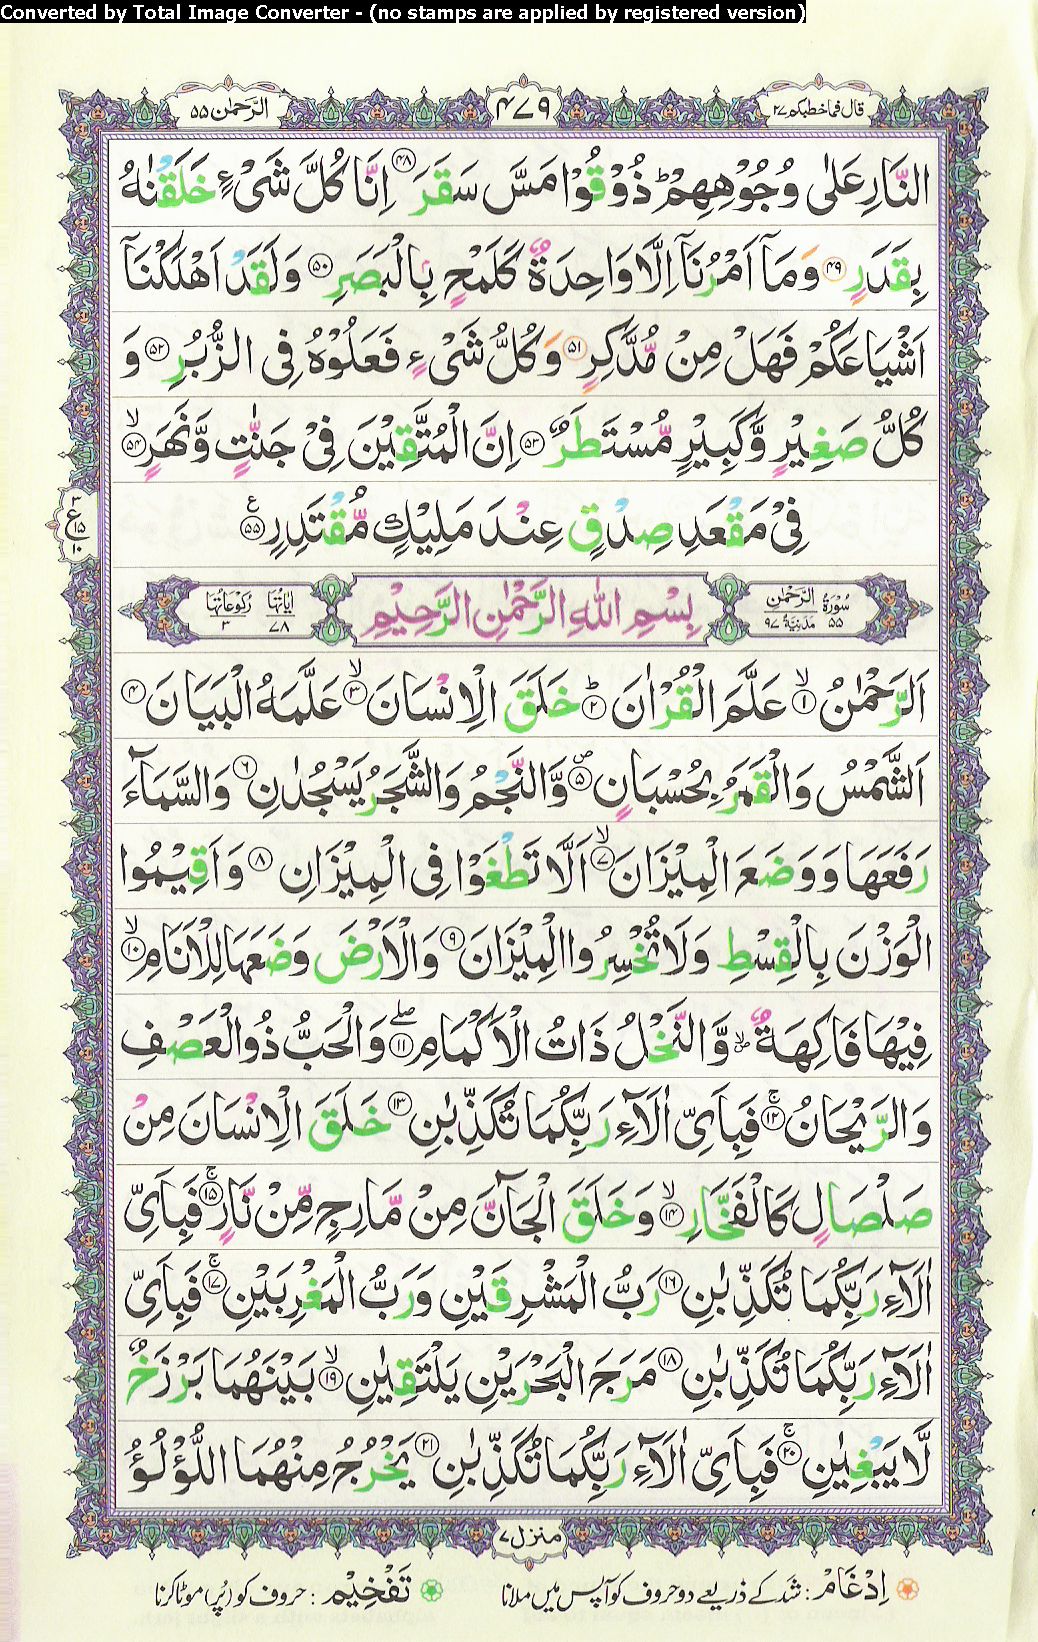 Converted by Total Image Converter - (no stamps are applied by registered version)
قال فماخطبكم ٢٧
٤٧٩
الرّحمٰن ٥٥
النَّارِ عَلٰى وُجُوْهِهِمْ ؕ ذُوْقُوْا مَسَّ سَقَرَ ﴿۴۸﴾ اِنَّا كُلَّ شَیْءٍ خَلَقْنٰهُ
بِقَدَرٍ ﴿۴۹﴾ وَمَاۤ اَمْرُنَاۤ اِلَّا وَاحِدَةٌ كَلَمْحٍۭ بِالْبَصَرِ ﴿۵۰﴾ وَلَقَدْ اَهْلَكْنَاۤ
اَشْیَاعَكُمْ فَهَلْ مِنْ مُّدَّكِرٍ ﴿۵۱﴾ وَكُلُّ شَیْءٍ فَعَلُوْهُ فِی الزُّبُرِ ﴿۵۲﴾ وَ
كُلُّ صَغِیْرٍ وَّكَبِیْرٍ مُّسْتَطَرٌ ﴿۵۳﴾ اِنَّ الْمُتَّقِیْنَ فِیْ جَنّٰتٍ وَّنَهَرٍ ﴿۵۴﴾ۙ
فِیْ مَقْعَدِ صِدْقٍ عِنْدَ مَلِیْكٍ مُّقْتَدِرٍ ﴿۵۵﴾
٣
ع
١٥
١٠
سُوْرَةُ الرَّحْمٰنِ ٥٥ مَدَنِيَّةٌ ٩٧
بِسْمِ اللّٰهِ الرَّحْمٰنِ الرَّحِیْمِ
اٰیَاتُهَا ٧٨ رُكُوْعَاتُهَا ٣
اَلرَّحْمٰنُ ﴿۱﴾ۙ عَلَّمَ الْقُرْاٰنَ ﴿۲﴾ؕ خَلَقَ الْاِنْسَانَ ﴿۳﴾ۙ عَلَّمَهُ الْبَیَانَ ﴿۴﴾
اَلشَّمْسُ وَالْقَمَرُ بِحُسْبَانٍ ﴿۵﴾ۖ وَّالنَّجْمُ وَالشَّجَرُ یَسْجُدٰنِ ﴿۶﴾ وَالسَّمَآءَ
رَفَعَهَا وَوَضَعَ الْمِیْزَانَ ﴿۷﴾ۙ اَلَّا تَطْغَوْا فِی الْمِیْزَانِ ﴿۸﴾ وَاَقِیْمُوا
الْوَزْنَ بِالْقِسْطِ وَلَا تُخْسِرُوا الْمِیْزَانَ ﴿۹﴾ وَالْاَرْضَ وَضَعَهَا لِلْاَنَامِ ﴿۱۰﴾ۙ
فِیْهَا فَاكِهَةٌ وَّالنَّخْلُ ذَاتُ الْاَكْمَامِ ﴿۱۱﴾ۖ وَالْحَبُّ ذُو الْعَصْفِ
وَالرَّیْحَانُ ﴿۱۲﴾ۚ فَبِاَیِّ اٰلَآءِ رَبِّكُمَا تُكَذِّبٰنِ ﴿۱۳﴾ خَلَقَ الْاِنْسَانَ مِنْ
صَلْصَالٍ كَالْفَخَّارِ ﴿۱۴﴾ۙ وَخَلَقَ الْجَآنَّ مِنْ مَّارِجٍ مِّنْ نَّارٍ ﴿۱۵﴾ۚ فَبِاَیِّ
اٰلَآءِ رَبِّكُمَا تُكَذِّبٰنِ ﴿۱۶﴾ رَبُّ الْمَشْرِقَیْنِ وَرَبُّ الْمَغْرِبَیْنِ ﴿۱۷﴾ۚ فَبِاَیِّ
اٰلَآءِ رَبِّكُمَا تُكَذِّبٰنِ ﴿۱۸﴾ مَرَجَ الْبَحْرَیْنِ یَلْتَقِیٰنِ ﴿۱۹﴾ۙ بَیْنَهُمَا بَرْزَخٌ
لَّا یَبْغِیٰنِ ﴿۲۰﴾ۚ فَبِاَیِّ اٰلَآءِ رَبِّكُمَا تُكَذِّبٰنِ ﴿۲۱﴾ یَخْرُجُ مِنْهُمَا اللُّؤْلُؤُ
منزل ٧
اِدْغَامْ : شد کے ذریعے دو حروف کو آپس میں ملانا
تَفْخِیْم : حروف کو (پُر) موٹا کرنا